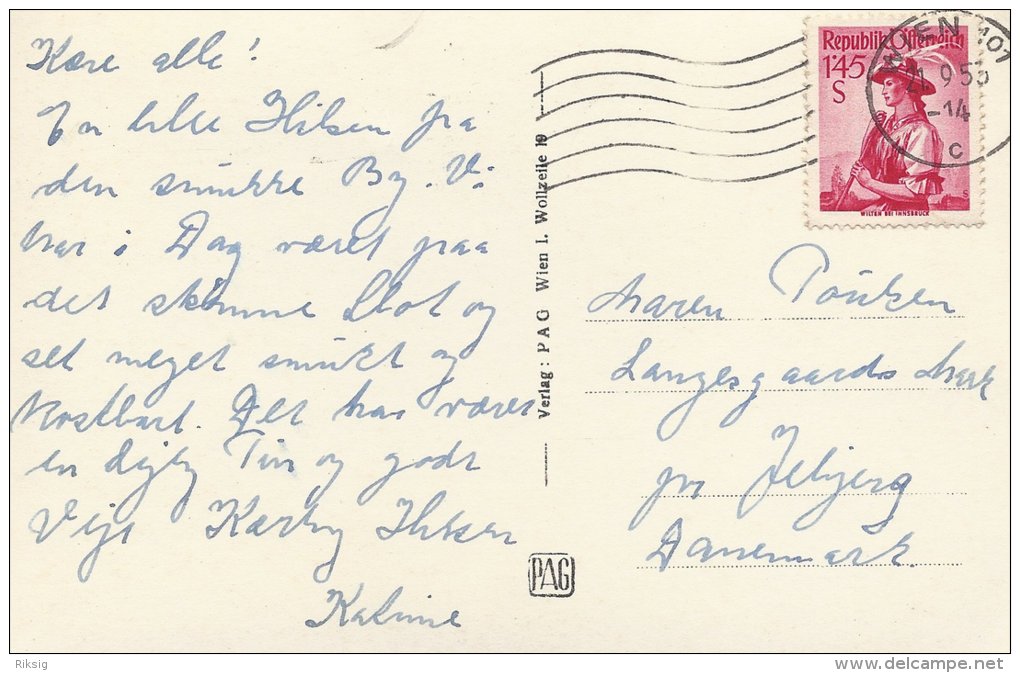 Kære alle!
En lille Hilsen fra
den smukke By. Vi
har i Dag været paa
det skønne Slot og
set meget smukt og
kostbart. Det har været
en dejlig Tur og godt
Vejr Kærlig Hilsen
Republik Österreich
1·45
S
WILTEN BEI INNSBRUCK
WIEN 101
21.9.53
-14
c
Verlag: PAG Wien I. Wollzeile 19
Maren
Langesgaards Mark
pr Jebjerg
Danemark.
PAG
Riksig
www.delcampe.net